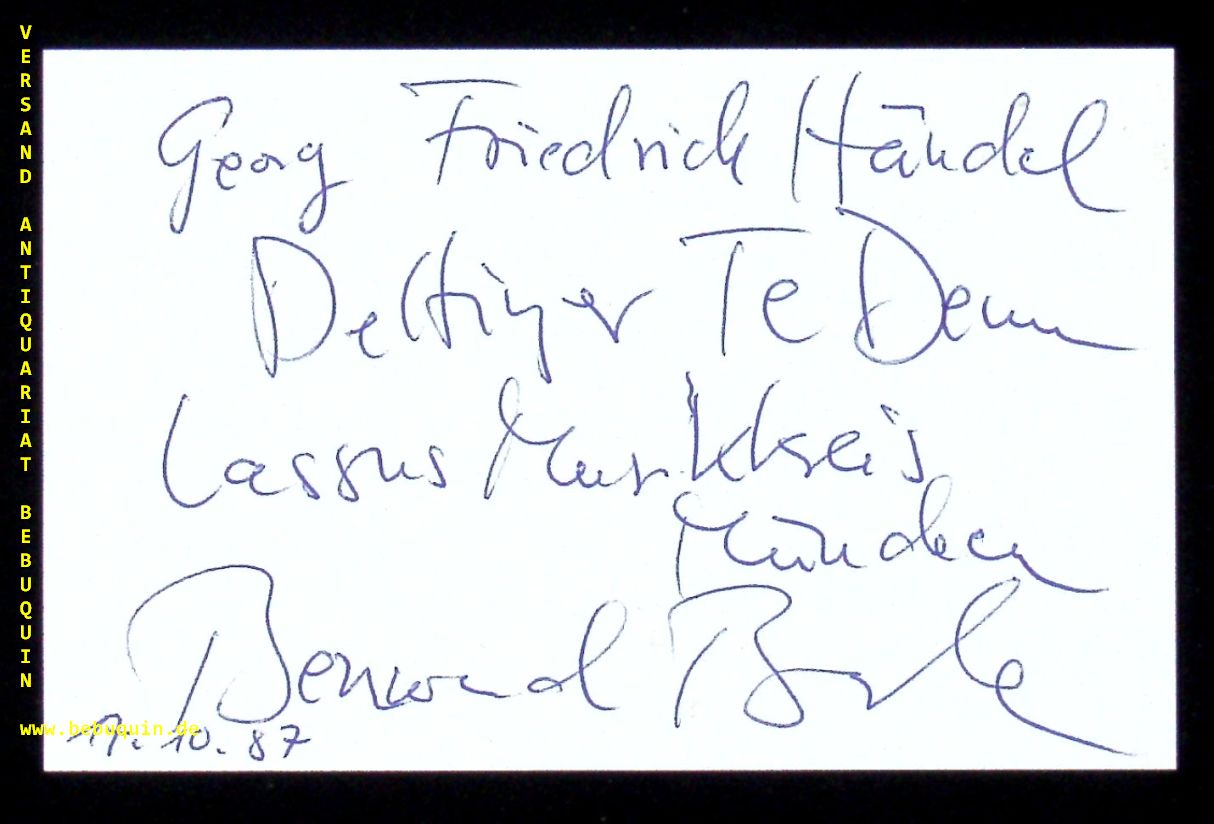 VERSAND ANTIQUARIAT BEBUQUIN
www.bebuquin.de
Georg Friedrich Händel
Dettinger Te Deum
Lassus Musikkreis
München
Bernward Beyerle
19.10.87